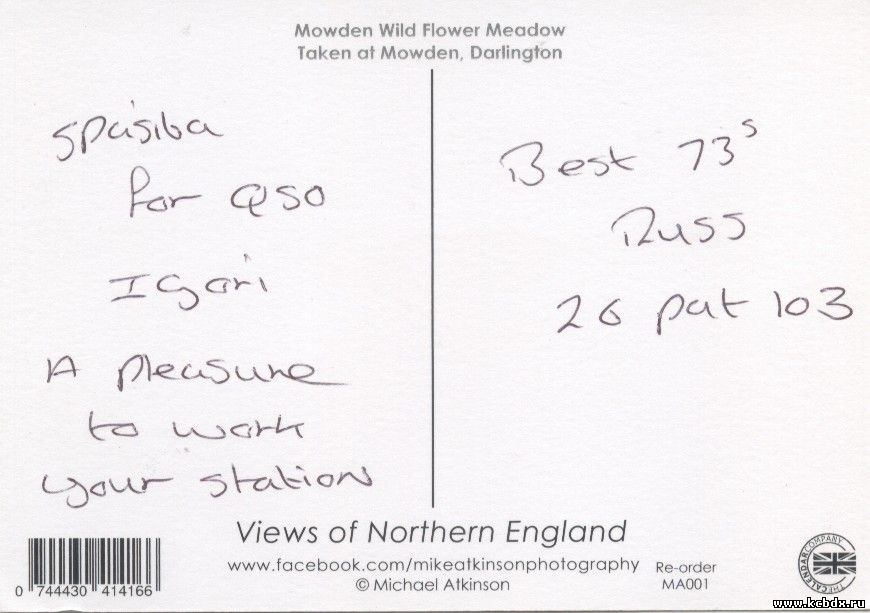 Mowden Wild Flower Meadow
Taken at Mowden, Darlington
spasiba
for QSO
Igori
A pleasure
to work
your station
Best 73s
Russ
26 pat 103
Views of Northern England
www.facebook.com/mikeatkinsonphotography
© Michael Atkinson
Re-order
MA001
0 744430 414166
THE CALENDAR COMPANY
www.kcbdx.ru